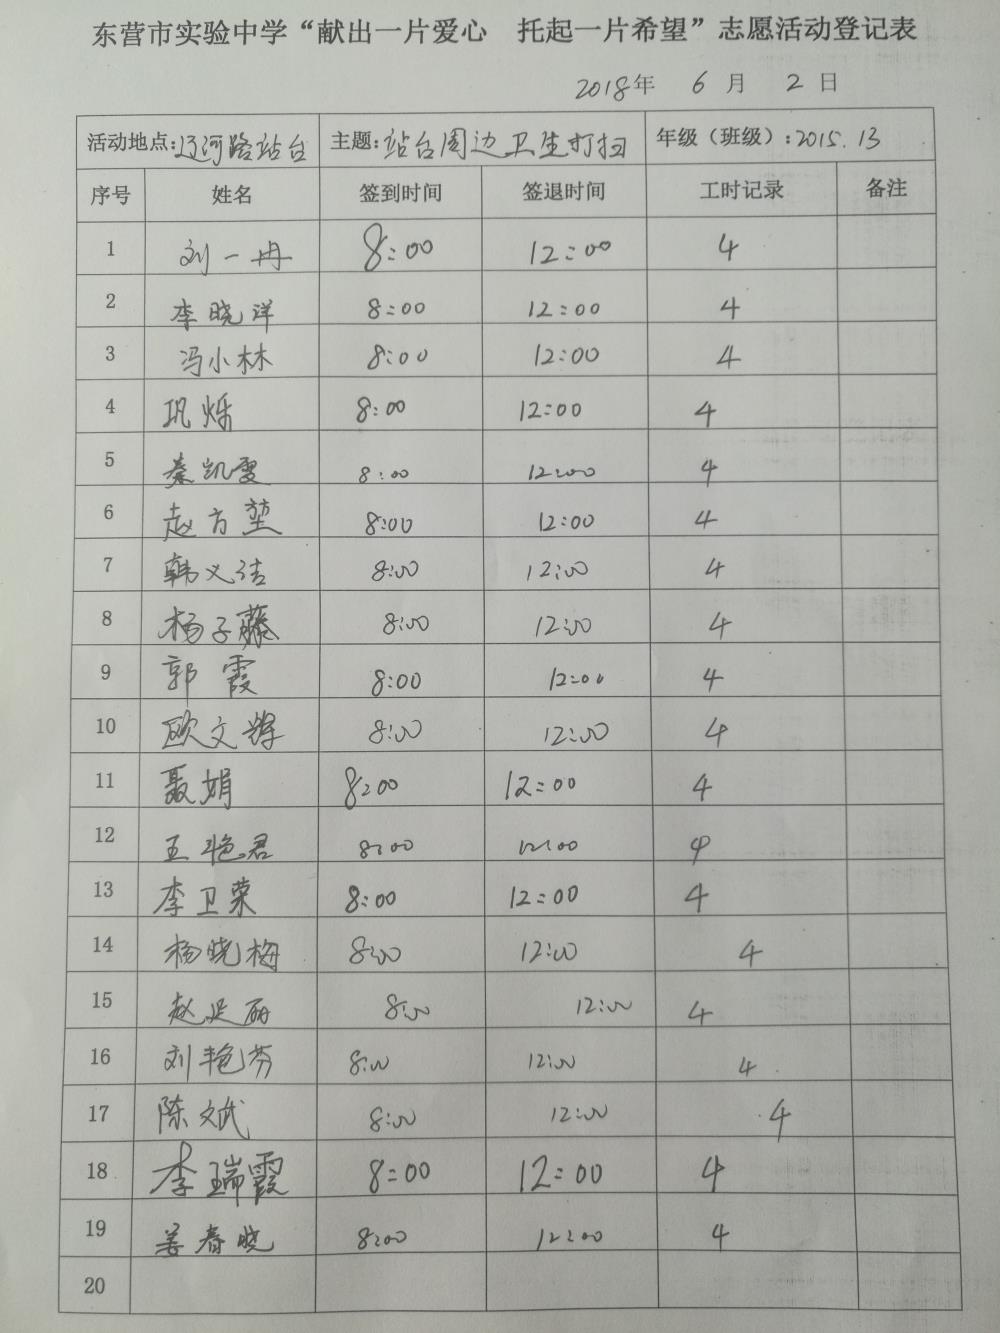 东营市实验中学“献出一片爱心　托起一片希望”志愿活动登记表
2018年 6 月 2 日
活动地点:辽河路站台 主题:站台周边卫生打扫 年级（班级）:2015.13
序号 姓名 签到时间 签退时间 工时记录 备注
1 刘一冉 8:00 12:00 4
2 李晓洋 8:00 12:00 4
3 冯小林 8:00 12:00 4
4 巩烁 8:00 12:00 4
5 秦凯雯 8:00 12:00 4
6 赵方堃 8:00 12:00 4
7 韩义洁 8:00 12:00 4
8 杨子藤 8:00 12:00 4
9 郭霞 8:00 12:00 4
10 欧文辉 8:00 12:00 4
11 聂娟 8:00 12:00 4
12 王艳君 8:00 12:00 4
13 李卫荣 8:00 12:00 4
14 杨晓梅 8:00 12:00 4
15 赵延丽 8:00 12:00 4
16 刘艳芬 8:00 12:00 4
17 陈文武 8:00 12:00 4
18 李瑞霞 8:00 12:00 4
19 姜春晓 8:00 12:00 4
20